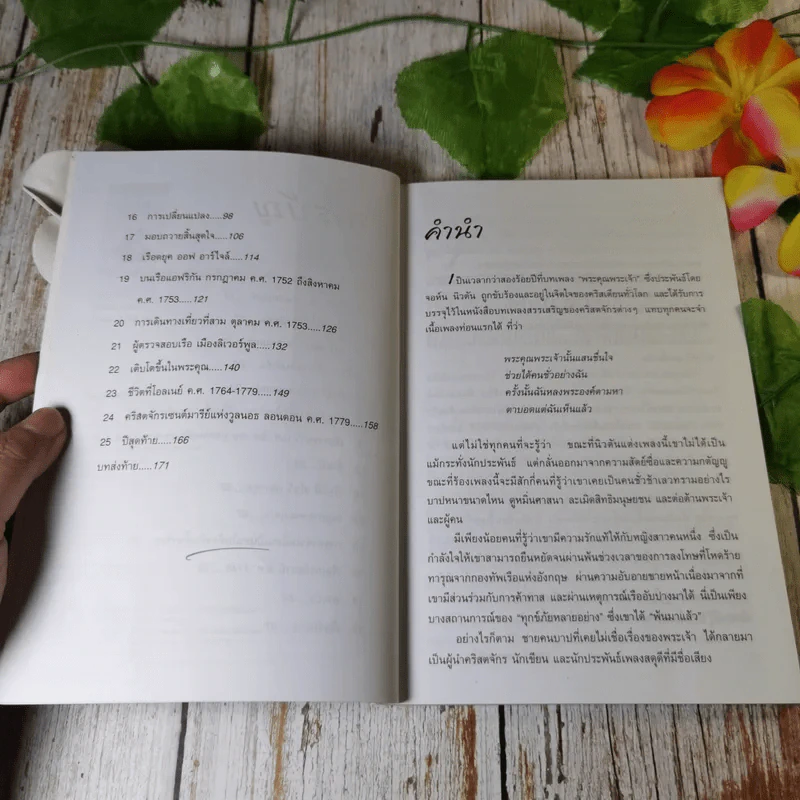 16 การเปลี่ยนแปลง.....98
17 มอบถวายสิ้นสุดใจ.....106
18 เรือดยุค ออฟ อาร์ไจล์.....114
19 บนเรือแอฟริกัน กรกฎาคม ค.ศ. 1752 ถึงสิงหาคม
ค.ศ. 1753.....121
20 การเดินทางเที่ยวที่สาม ตุลาคม ค.ศ. 1753.....126
21 ผู้ตรวจสอบเรือ เมืองลิเวอร์พูล.....132
22 เติบโตขึ้นในพระคุณ.....140
23 ชีวิตที่โอลเนย์ ค.ศ. 1764-1779.....149
24 คริสตจักรเซนต์มารีย์แห่งวูลนอธ ลอนดอน ค.ศ. 1779.....158
25 ปีสุดท้าย.....166
บทส่งท้าย.....171
คำนำ
เป็นเวลากว่าสองร้อยปีที่บทเพลง "พระคุณพระเจ้า" ซึ่งประพันธ์โดย
จอห์น นิวตัน ถูกขับร้องและอยู่ในจิตใจของคริสเตียนทั่วโลก และได้รับการ
บรรจุไว้ในหนังสือบทเพลงสรรเสริญของคริสตจักรต่างๆ แทบทุกคนจะจำ
เนื้อเพลงท่อนแรกได้ ที่ว่า
พระคุณพระเจ้านั้นแสนชื่นใจ
ช่วยได้คนชั่วอย่างฉัน
ครั้งนั้นฉันหลงพระองค์ตามหา
ตาบอดแต่ฉันเห็นแล้ว
แต่ไม่ใช่ทุกคนที่จะรู้ว่า ขณะที่นิวตันแต่งเพลงนี้เขาไม่ได้เป็น
แม้กระทั่งนักประพันธ์ แต่กลั่นออกมาจากความสัตย์ซื่อและความกตัญญู
ขณะที่ร้องเพลงนี้จะมีสักกี่คนที่รู้ว่าเขาเคยเป็นคนชั่วช้าเลวทรามอย่างไร
บาปหนาขนาดไหน ดูหมิ่นศาสนา ละเมิดสิทธิมนุษยชน และต่อต้านพระเจ้า
และผู้คน
มีเพียงน้อยคนที่รู้ว่าเขามีความรักแท้ให้กับหญิงสาวคนหนึ่ง ซึ่งเป็น
กำลังใจให้เขาสามารถยืนหยัดจนผ่านพ้นช่วงเวลาของการลงโทษที่โหดร้าย
ทารุณจากกองทัพเรือแห่งอังกฤษ ผ่านความอับอายขายหน้าเนื่องมาจากที่
เขามีส่วนร่วมกับการค้าทาส และผ่านเหตุการณ์เรืออับปางมาได้ นี่เป็นเพียง
บางสถานการณ์ของ "ทุกข์ภัยหลายอย่าง" ซึ่งเขาได้ "พ้นมาแล้ว"
อย่างไรก็ตาม ชายคนบาปที่เคยไม่เชื่อเรื่องของพระเจ้า ได้กลายมา
เป็นผู้นำคริสตจักร นักเขียน และนักประพันธ์เพลงสดุดีที่มีชื่อเสียง